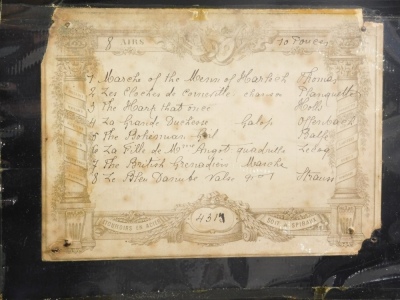 8 AIRS
1 Marche of the Menn of Harlech Thomas
2 Les Cloches de Corneville chanson Planquette
3 The Harp that once
4 La Grande Duchesse Galop Offenbach
5 The Bohemian Girl Balfe
6 La Fille de Mme Angot quadrille Lecoq
7 The British Grenadiers Marche
8 Le Bleu Danube Valse Strauss
4317